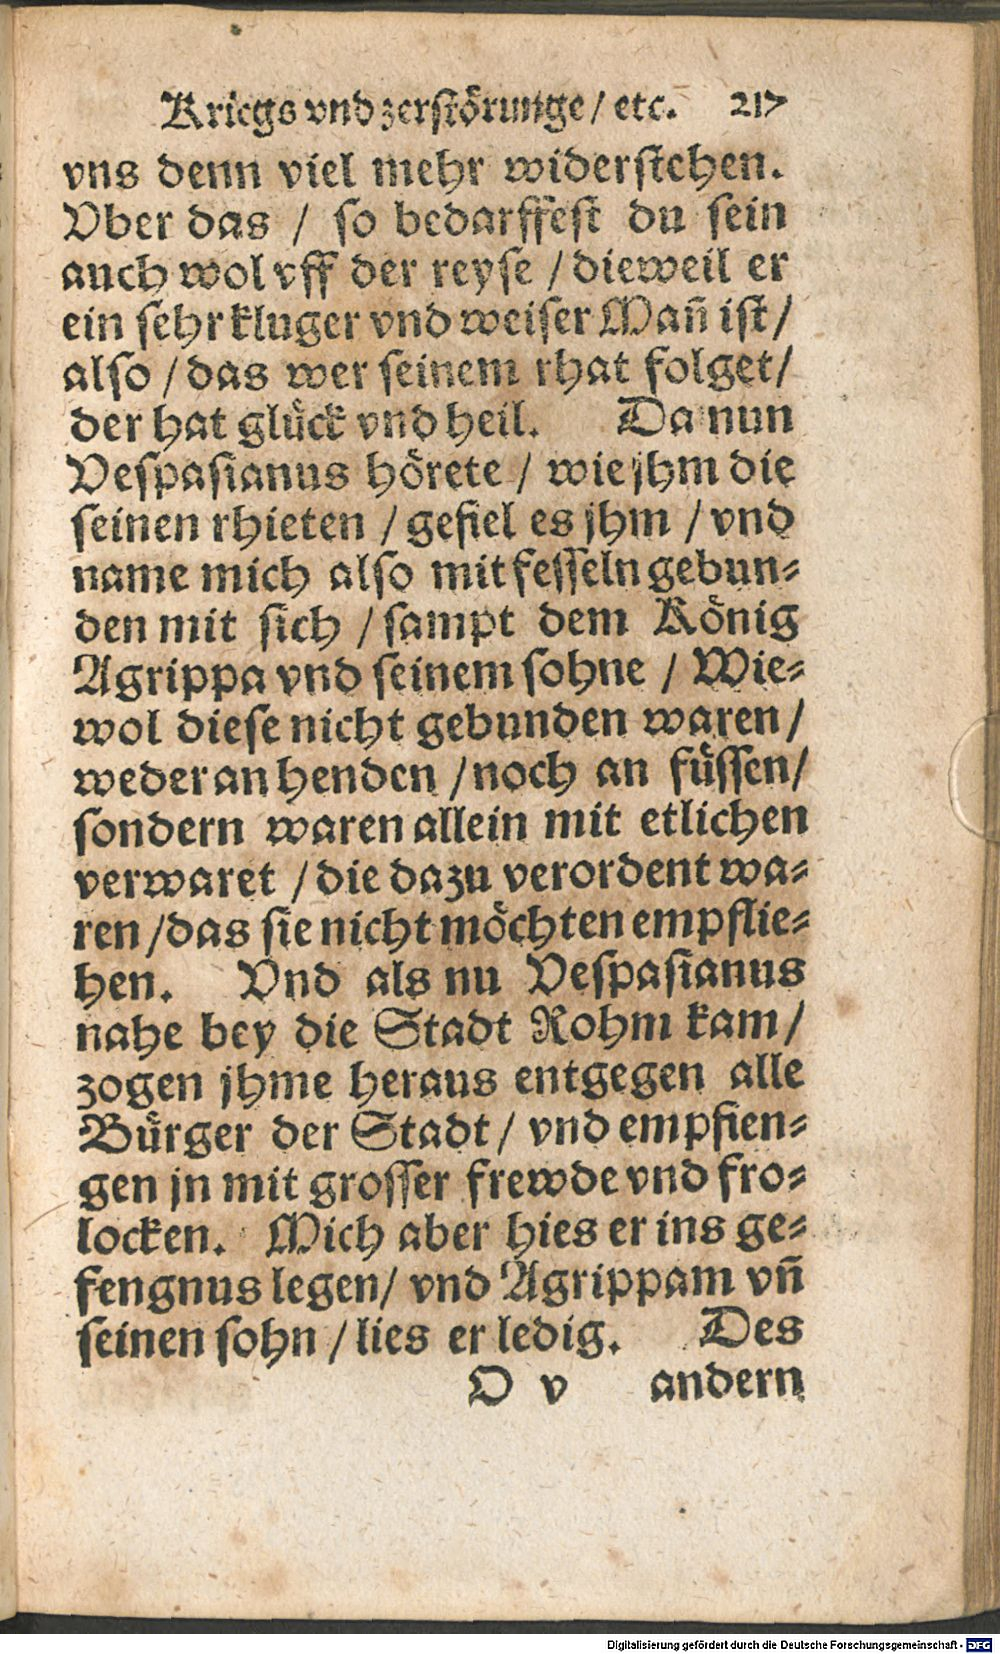 Kriegs vnd zerstörunge / etc. 217
vns denn viel mehr widerstehen.
Vber das / so bedarffest du sein
auch wol vff der reyse / dieweil er
ein sehr kluger vnd weiser Mañ ist /
also / das wer seinem rhat folget /
der hat glück vnd heil. Da nun
Vespasianus hörete / wie jhm die
seinen rhieten / gefiel es jhm / vnd
name mich also mit fesseln gebun⸗
den mit sich / sampt dem König
Agrippa vnd seinem sohne / Wie⸗
wol diese nicht gebunden waren /
weder an henden / noch an füssen /
sondern waren allein mit etlichen
verwaret / die dazu verordent wa⸗
ren / das sie nicht möchten empflie⸗
hen. Vnd als nu Vespasianus
nahe bey die Stadt Rohm kam /
zogen jhme heraus entgegen alle
Bürger der Stadt / vnd empfien⸗
gen jn mit grosser frewde vnd fro⸗
locken. Mich aber hies er ins ge⸗
fengnus legen / vnd Agrippam vñ
seinen sohn / lies er ledig. Des
O v andern
Digitalisierung gefördert durch die Deutsche Forschungsgemeinschaft - DFG